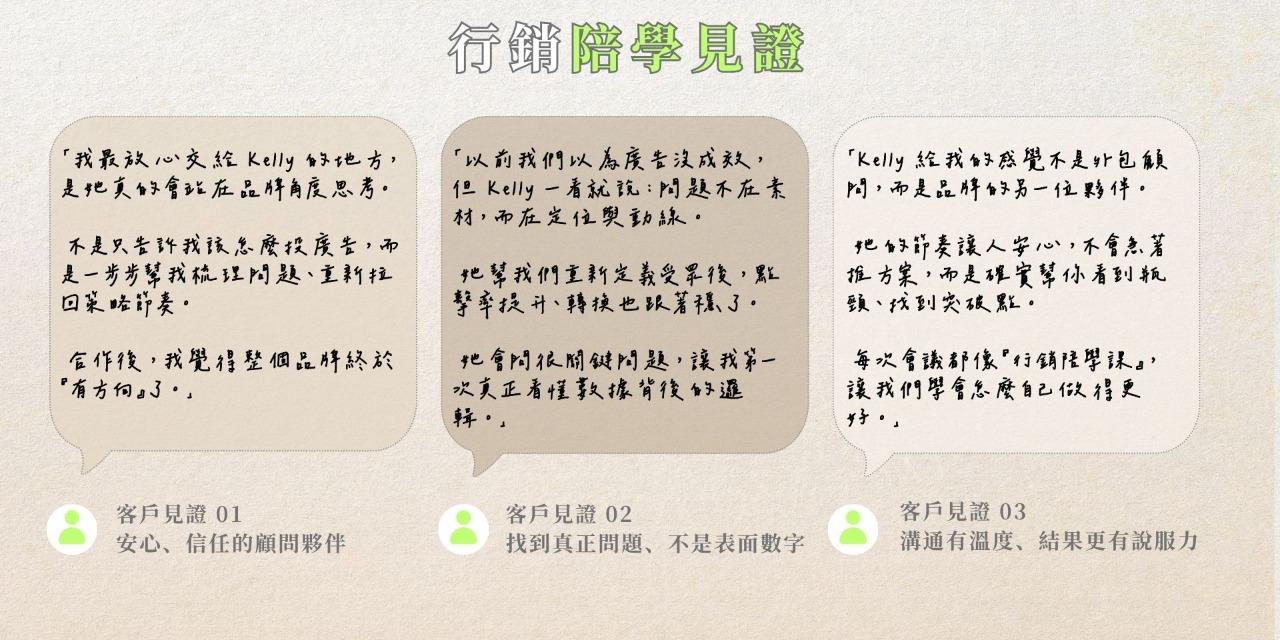 行銷陪學見證
「我最放心交給 Kelly 的地方，
是她真的會站在品牌角度思考。
不是只告訴我該怎麼投廣告，而
是一步步幫我梳理問題、重新拉
回策略節奏。
合作後，我覺得整個品牌終於
『有方向』了。」
「以前我們以為廣告沒成效，
但 Kelly 一看就說：問題不在素
材，而在定位與動線。
她幫我們重新定義受眾後，點
擊率提升、轉換也跟著穩了。
她會問很關鍵問題，讓我第一
次真正看懂數據背後的邏
輯。」
「Kelly 給我的感覺不是外包顧
問，而是品牌的另一位夥伴。
她的節奏讓人安心，不會急著
推方案，而是確實幫你看到瓶
頸、找到突破點。
每次會議都像『行銷陪學課』，
讓我們學會怎麼自己做得更
好。」
客戶見證 01
安心、信任的顧問夥伴
客戶見證 02
找到真正問題、不是表面數字
客戶見證 03
溝通有溫度、結果更有說服力